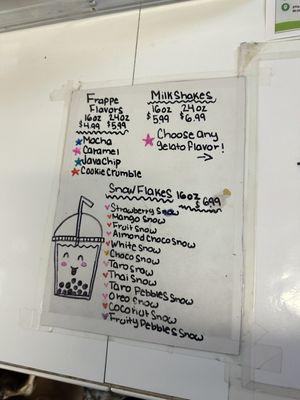 Frappe
Flavors
16oz 24oz
$4.99 $5.99
Mocha
Caramel
Java Chip
Cookie Crumble
Milkshakes
16oz 24oz
$5.99 $6.99
Choose any
gelato flavor!
Snow Flakes 16oz
$6.99
Strawberry Snow
Mango Snow
Fruit Snow
Almond Choco Snow
White Snow
Choco Snow
Taro Snow
Thai Snow
Taro Pebbles Snow
Oreo Snow
Coconut Snow
Fruity Pebbles Snow